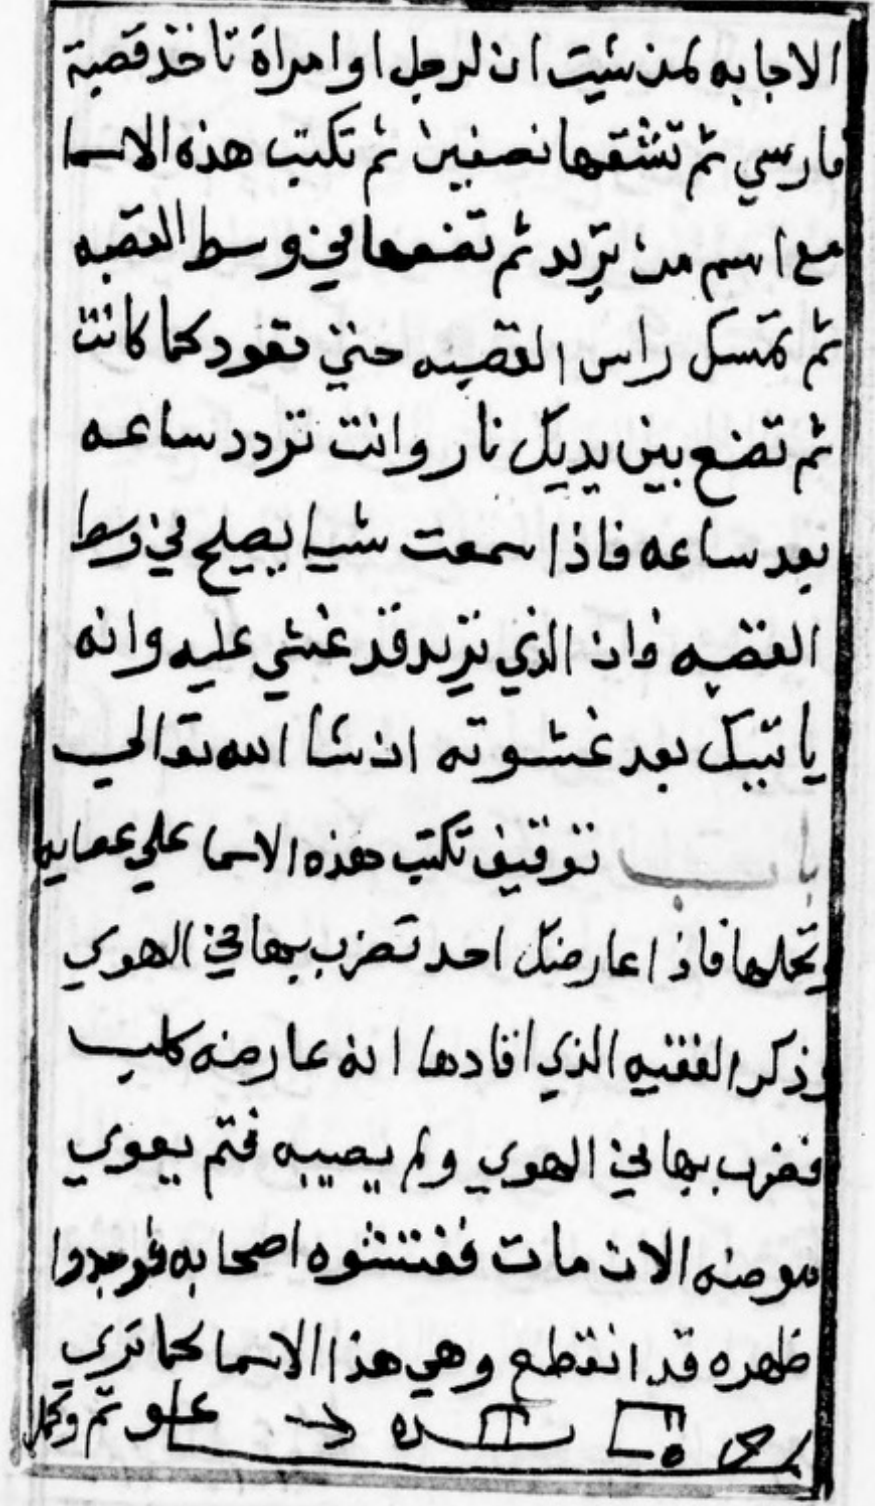 الاجابه لمن شيت ان لرجل او امراة تاخذ قصبة
فارسي ثم تشقها نصفين ثم تكتب هذه الاسما
مع اسم من تريد ثم تضعها في وسط القصبه
ثم تمسك راس القصبه حتي تعود كما كانت
ثم تضع بين يديك نار وانت تردد ساعه
بعد ساعه فاذا سمعت شيا يصيح في وسط
القصبه فان الذي تريد قد غشي عليه وانه
ياتيك بعد غشوته ان شا الله تعالي
باب توقيف تكتب هذه الاسما علي عصايه
وتحملها فاذا عارضك احد تضرب بها في الهوي
وذكر الفقيه الذي افادها انه عارضه كلب
فضرب بها في الهوي ولم يصيبه فتم يعوي
موضه الان مات ففتشوه اصحابه فوجدوا
ظهره قد انقطع وهي هذا الاسما كما تري
ثم وكمل